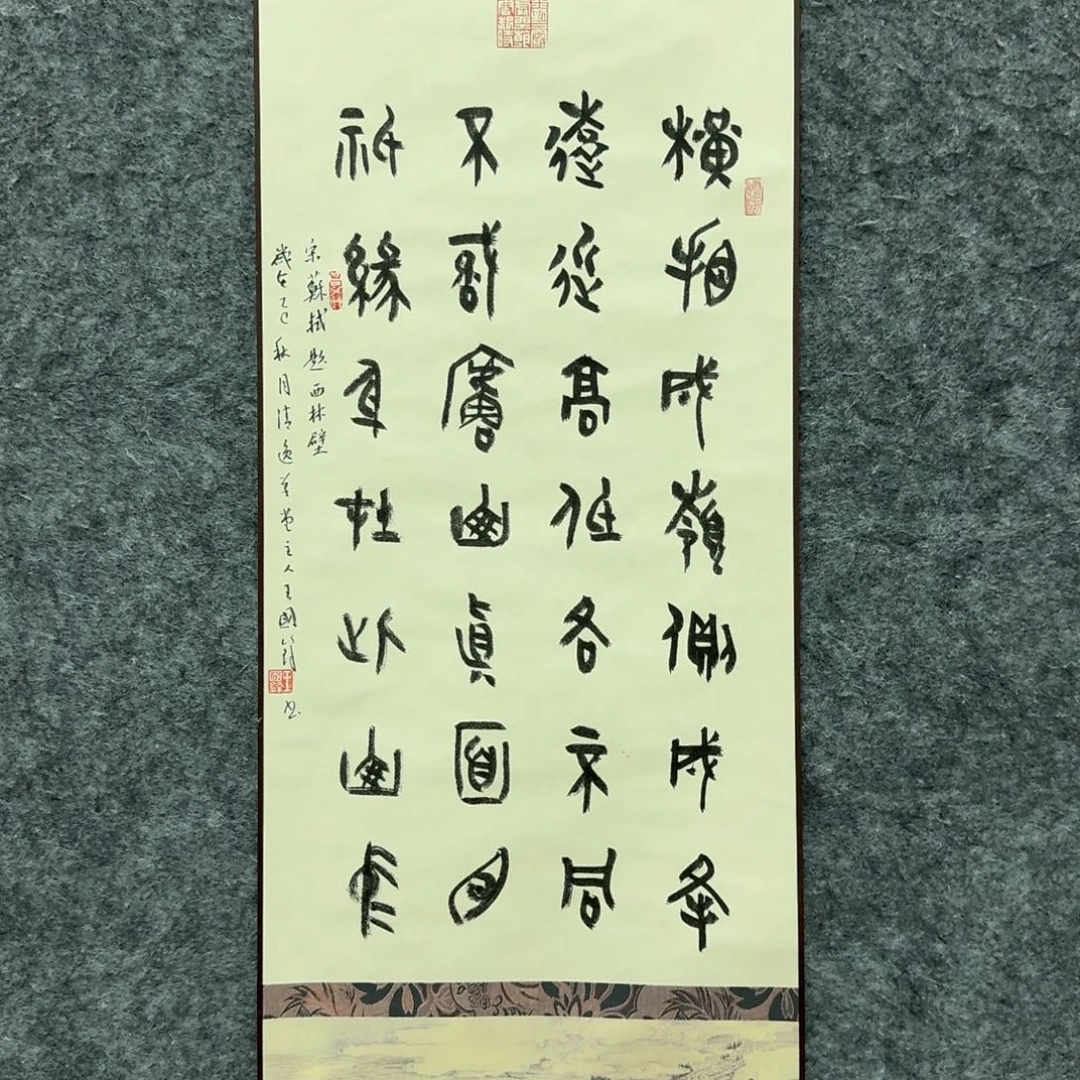 橫看成嶺側成峯
遠近高低各不同
不識廬山眞面目
祇緣身在此山中
宋蘇軾題西林壁
歲在乙巳秋月清逸草堂主人王國書